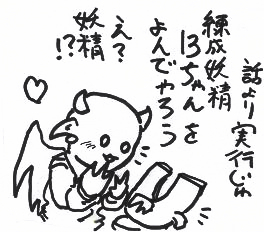 話より実行じゃ
練成妖精
13ちゃんを
よんでやろう
え?
妖精
!?